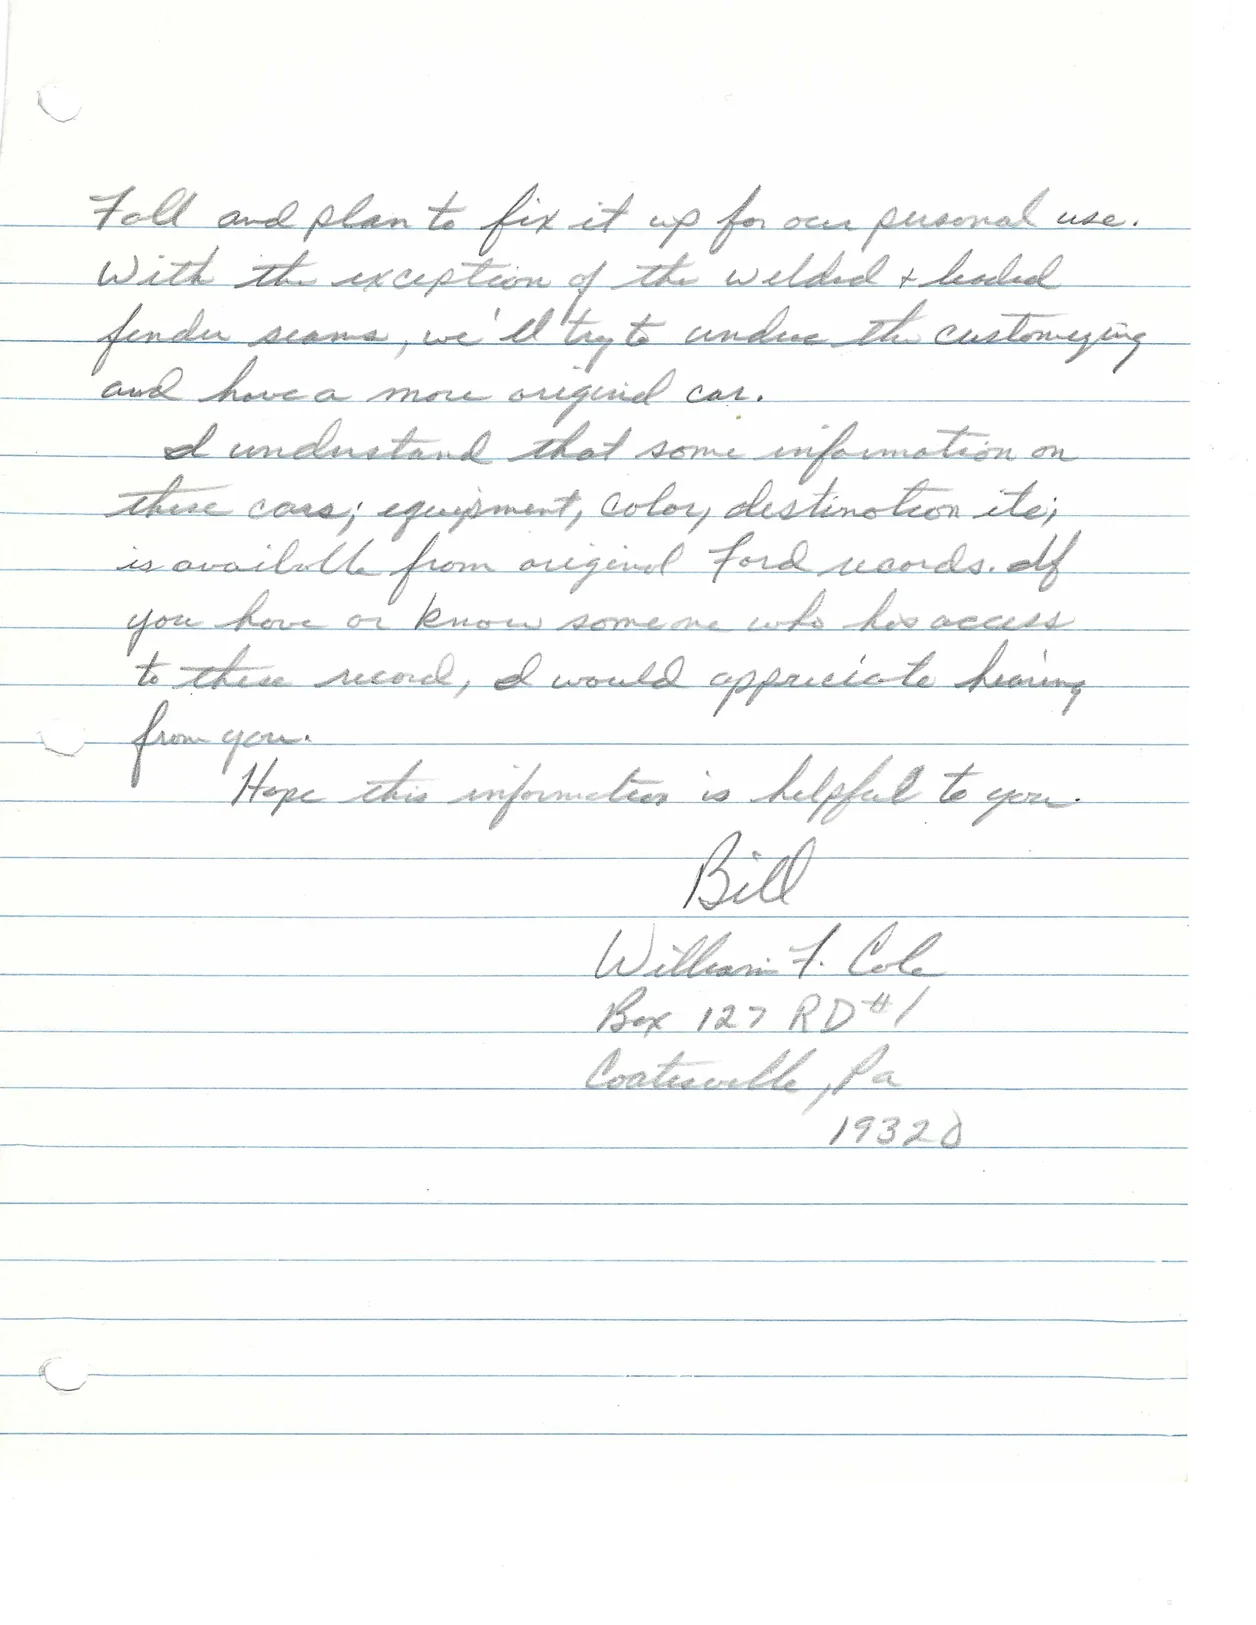 Fall and plan to fix it up for our personal use.
With the exception of the welded + leaded
fender seams, we'll try to undue the customizing
and have a more original car.
I understand that some information on
these cars; equipment, color, destination etc;
is available from original Ford records. If
you have or know someone who has access
to these record, I would appreciate hearing
from you.
Hope this information is helpful to you.
Bill
William F. Cole
Box 127 RD #1
Coatesville, Pa
19320